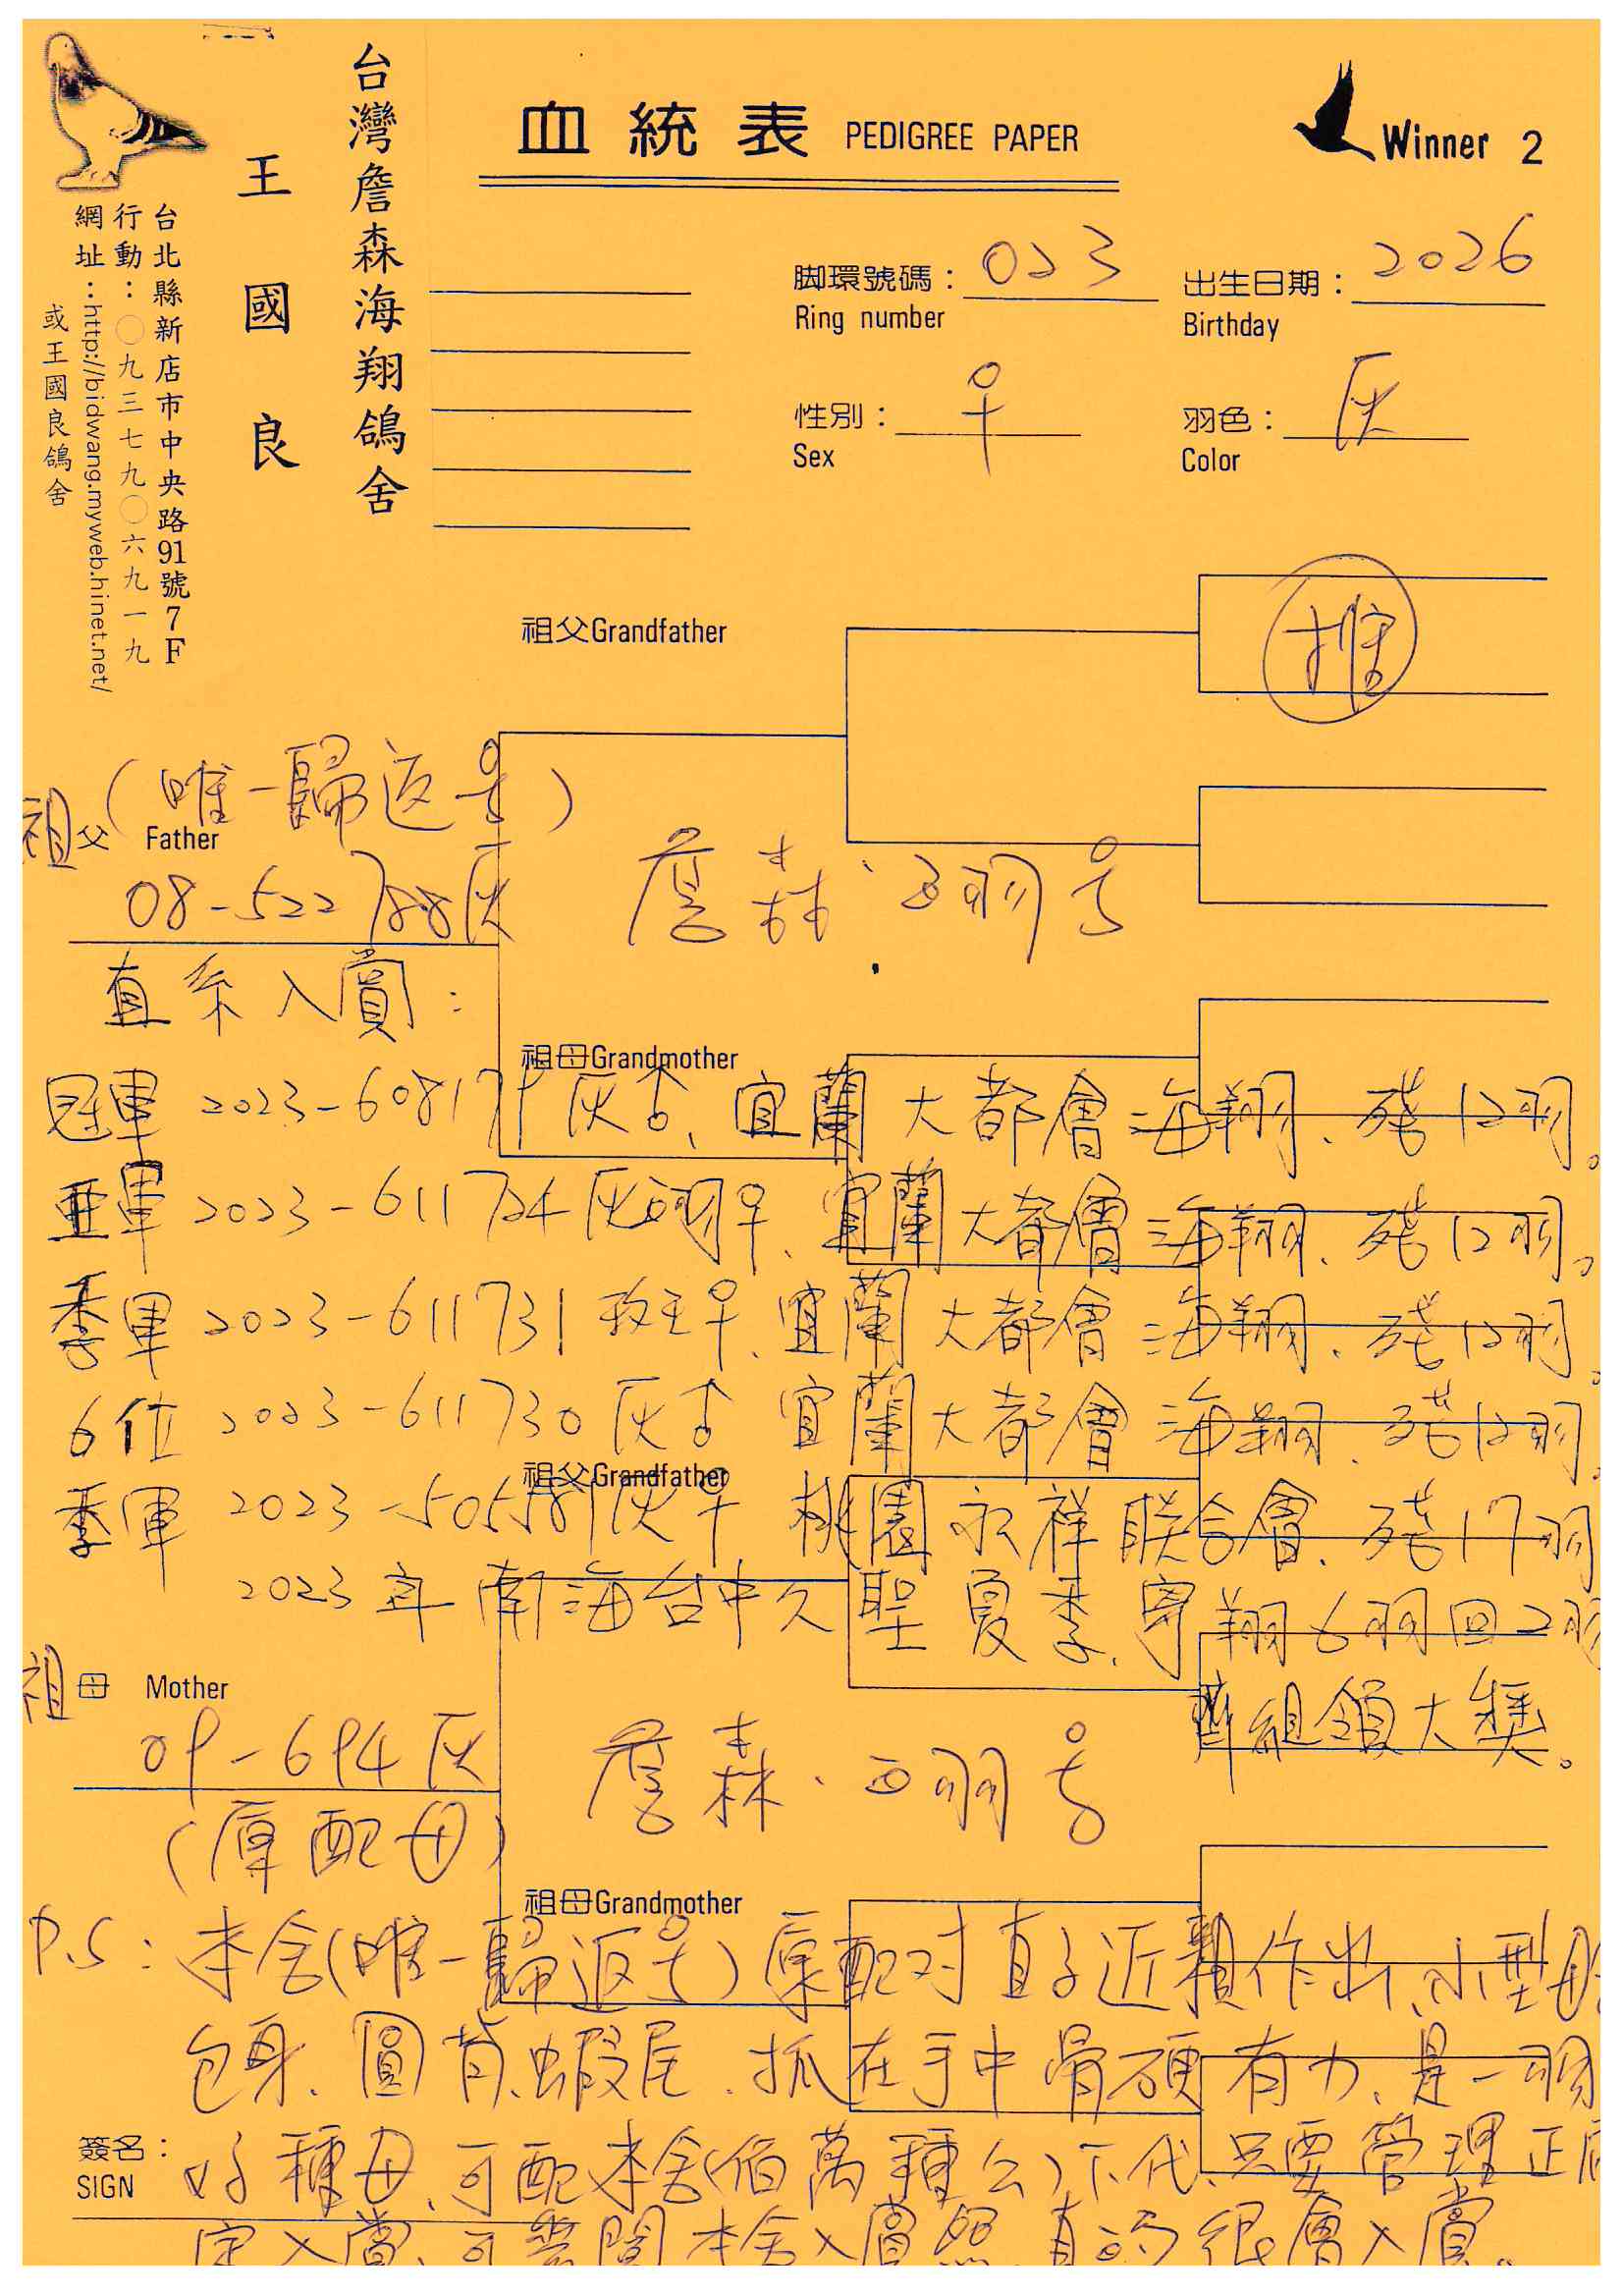 台灣詹森海翔鴿舍
王國良
台北縣新店市中央路91號7F
行動：〇九三七九〇六九一九
網址：http://bidwang.myweb.hinet.net/
或王國良鴿舍
血統表 PEDIGREE PAPER
Winner 2
脚環號碼： 023
Ring number
出生日期： 2026
Birthday
性別： ♀
Sex
羽色： 灰
Color
推
祖父Grandfather
(唯一歸返号)
祖父 Father
08-522788灰 詹森·白羽号
直系入賞：
祖母Grandmother
冠軍 2023-608179灰♂、宜蘭大都會海翔、殘12羽。
亞軍 2023-611724灰白羽♀、宜蘭大都會海翔、殘12羽。
季軍 2023-611731斑♀、宜蘭大都會海翔、殘12羽。
6位 2023-611730灰♂ 宜蘭大都會海翔、殘12羽。
祖父Grandfather
季軍 2023-505581灰♀ 桃園永祥联合會、殘17羽
2023年南海台中久聖夏季、寄翔6羽回2羽
齊組領大獎。
祖母 Mother
09-694灰 詹森·白羽号
(原配母)
祖母Grandmother
P.S：本舍(唯一歸返号)原配对直子近親作出、小型母
包身、圓背、蝦尾、抓在手中骨硬有力、是一羽
好種母、可配本舍(佰萬種公)下代、只要管理正
簽名：
SIGN
定入賞、可參閱本舍入賞鴿、真的很會入賞。